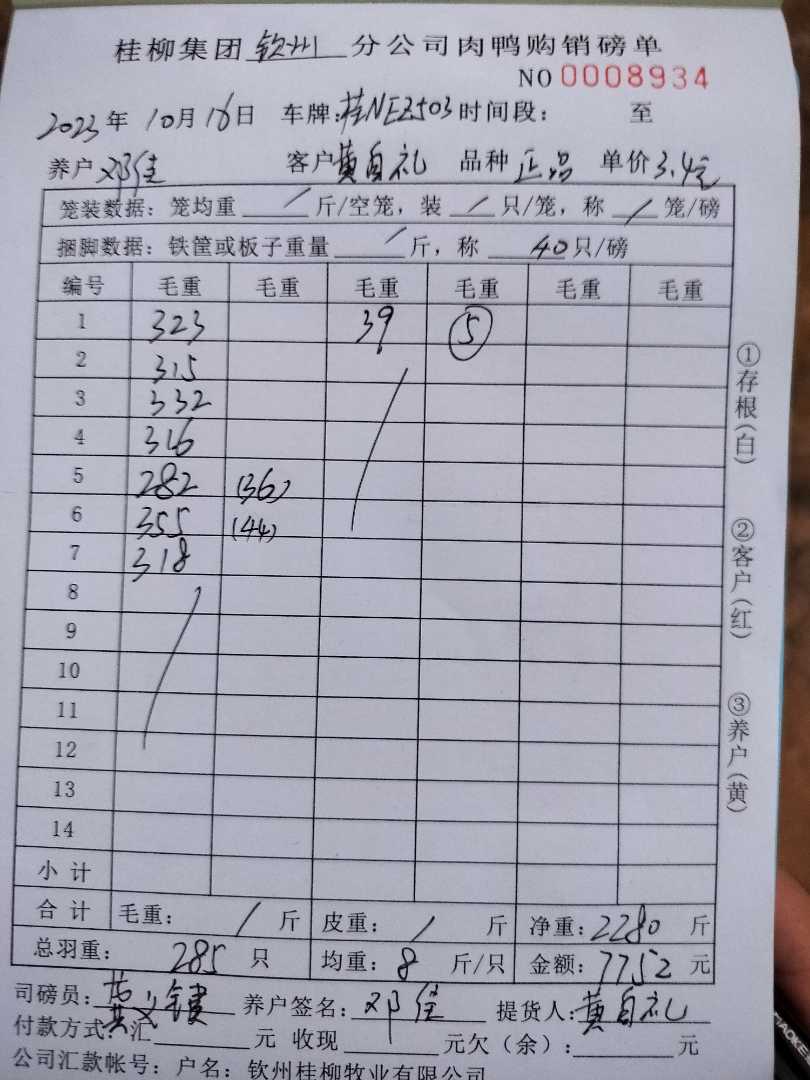 桂柳集团 钦州 分公司肉鸭购销磅单
NO 0008934
2023年 10月16日 车牌:桂NEZ503 时间段: 至
养户 邓佳 客户 黄自礼 品种 正品 单价 3.4元
笼装数据: 笼均重 / 斤/空笼, 装 / 只/笼, 称 / 笼/磅
捆脚数据: 铁筐或板子重量 / 斤, 称 40只/磅
编号 毛重 毛重 毛重 毛重 毛重 毛重
1 323 39 ⑤
2 315
3 332
4 316
5 282 (36)
6 355 (44)
7 318
8
9
10
11
12
13
14
小计
合计 毛重: / 斤 皮重: / 斤 净重: 2280 斤
总羽重: 285 只 均重: 8 斤/只 金额: 7752 元
司磅员: 养户签名: 邓佳 提货人: 黄自礼
付款方式: 汇 元 收现 元欠(余): 元
公司汇款帐号: 户名: 钦州桂柳牧业有限公司
①存根(白)
②客户(红)
③养户(黄)